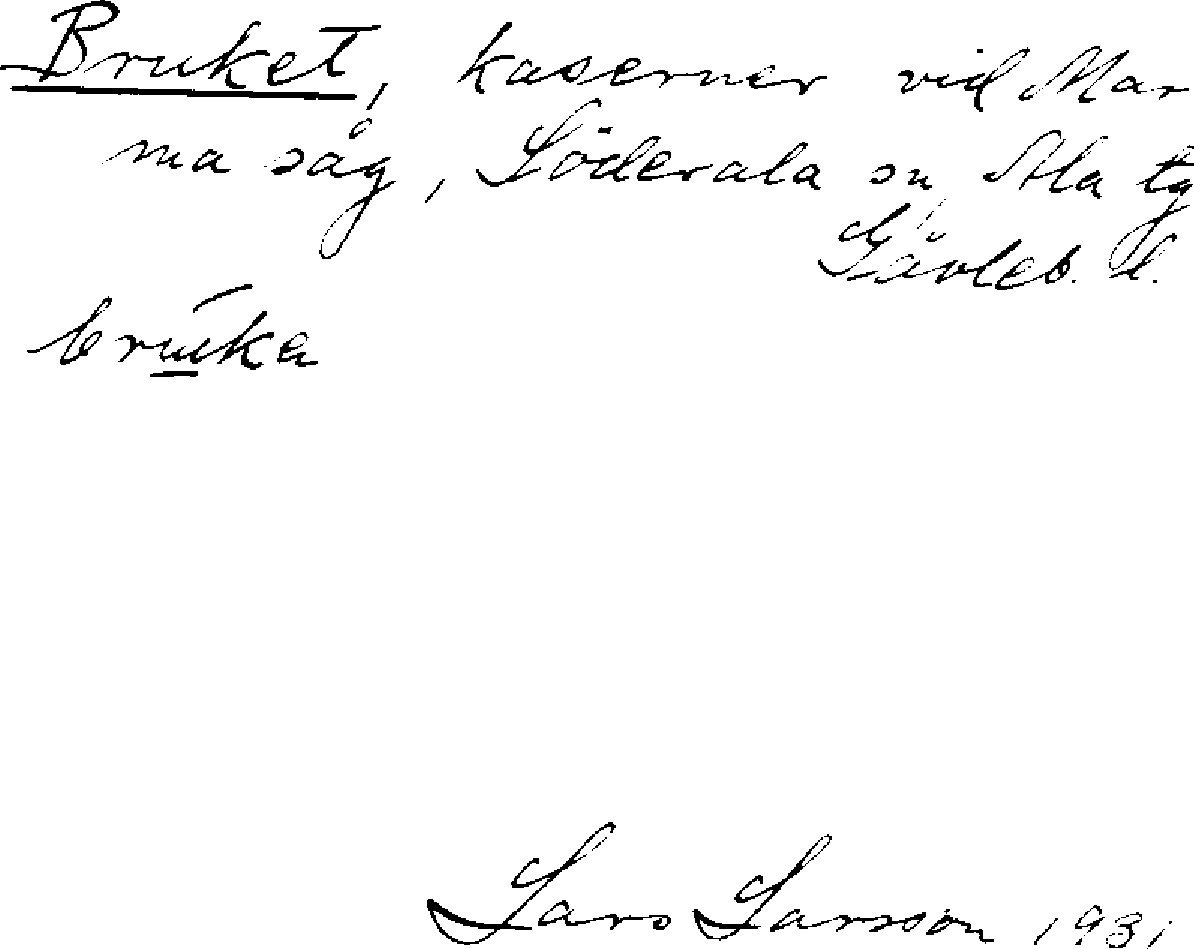 Bruket, kaserner vid Mar
ma såg, Söderala sn, Ala tg
Gävleb. l.
brúka
Lars Larsson 1931